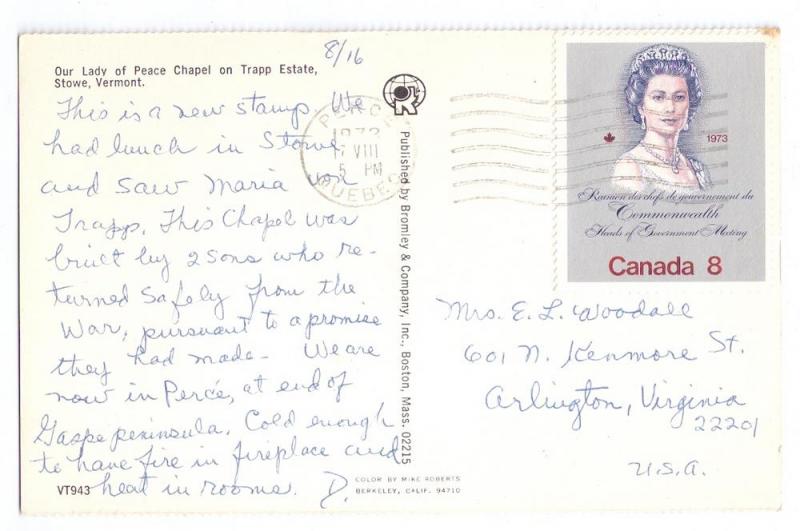 8/16
Our Lady of Peace Chapel on Trapp Estate,
Stowe, Vermont.
This is a new stamp. We
had lunch in Stowe
and saw Maria von
Trapp. This Chapel was
built by 2 sons who re-
turned safely from the
War, pursuant to a promise
they had made. We are
now in Percé, at end of
Gaspe peninsula. Cold enough
to have fire in fireplace and
heat in rooms. D.
VT943
COLOR BY MIKE ROBERTS
BERKELEY, CALIF. 94710
Published by Bromley & Company, Inc., Boston, Mass. 02215
PERCE
1973
17 VIII
5 PM
QUEBEC
1973
Réunion des chefs de gouvernement du
Commonwealth
Heads of Government Meeting
Canada 8
Mrs. E. L. Woodall
601 N. Kenmore St.
Arlington, Virginia
22201
U.S.A.